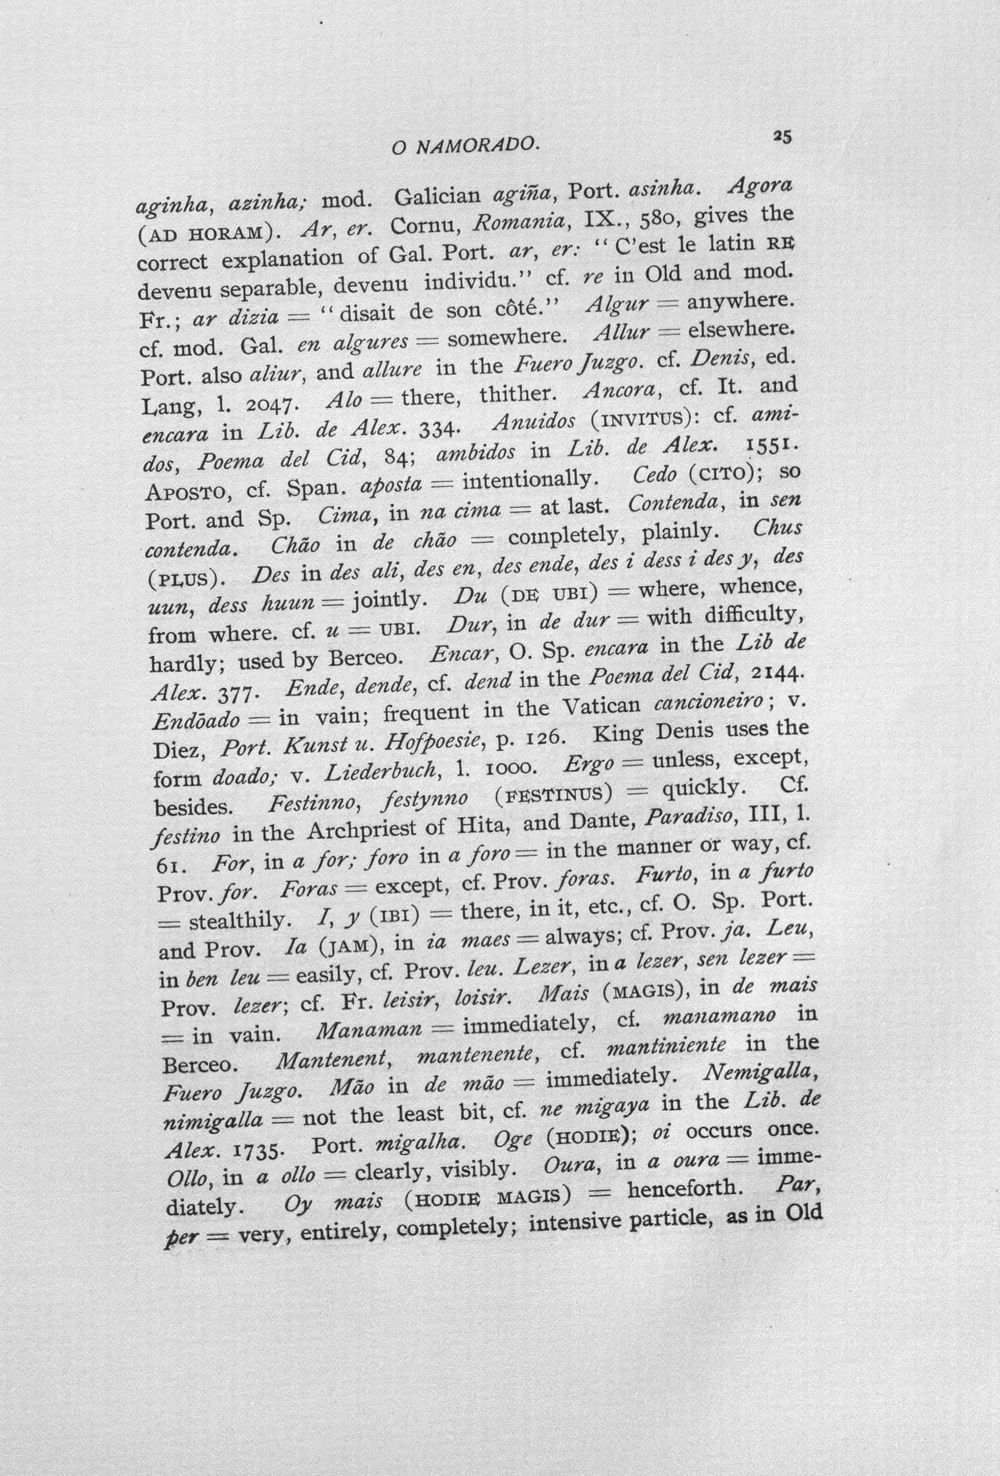 O NAMORADO. 25
aginha, azinha; mod. Galician agiña, Port. asinha. Agora
(AD HORAM). Ar, er. Cornu, Romania, IX., 580, gives the
correct explanation of Gal. Port. ar, er: “C’est le latin RE
devenu separable, devenu individu.” cf. re in Old and mod.
Fr.; ar dizia = “disait de son côté.” Algur = anywhere.
cf. mod. Gal. en algures = somewhere. Allur = elsewhere.
Port. also aliur, and allure in the Fuero Juzgo. cf. Denis, ed.
Lang, l. 2047. Alo = there, thither. Ancora, cf. It. and
encara in Lib. de Alex. 334. Anuidos (INVITUS): cf. ami-
dos, Poema del Cid, 84; ambidos in Lib. de Alex. 1551.
APOSTO, cf. Span. aposta = intentionally. Cedo (CITO); so
Port. and Sp. Cima, in na cima = at last. Contenda, in sen
contenda. Chão in de chão = completely, plainly. Chus
(PLUS). Des in des ali, des en, des ende, des i dess i des y, des
uun, dess huun = jointly. Du (DE UBI) = where, whence,
from where. cf. u = UBI. Dur, in de dur = with difficulty,
hardly; used by Berceo. Encar, O. Sp. encara in the Lib de
Alex. 377. Ende, dende, cf. dend in the Poema del Cid, 2144.
Endōado = in vain; frequent in the Vatican cancioneiro; v.
Diez, Port. Kunst u. Hofpoesie, p. 126. King Denis uses the
form doado; v. Liederbuch, l. 1000. Ergo = unless, except,
besides. Festinno, festynno (FESTINUS) = quickly. Cf.
festino in the Archpriest of Hita, and Dante, Paradiso, III, l.
61. For, in a for; foro in a foro = in the manner or way, cf.
Prov. for. Foras = except, cf. Prov. foras. Furto, in a furto
= stealthily. I, y (IBI) = there, in it, etc., cf. O. Sp. Port.
and Prov. Ia (JAM), in ia maes = always; cf. Prov. ja. Leu,
in ben leu = easily, cf. Prov. leu. Lezer, in a lezer, sen lezer =
Prov. lezer; cf. Fr. leisir, loisir. Mais (MAGIS), in de mais
= in vain. Manaman = immediately, cf. manamano in
Berceo. Mantenent, mantenente, cf. mantiniente in the
Fuero Juzgo. Mão in de mão = immediately. Nemigalla,
nimigalla = not the least bit, cf. ne migaya in the Lib. de
Alex. 1735. Port. migalha. Oge (HODIE); oi occurs once.
Ollo, in a ollo = clearly, visibly. Oura, in a oura = imme-
diately. Oy mais (HODIE MAGIS) = henceforth. Par,
per = very, entirely, completely; intensive particle, as in Old